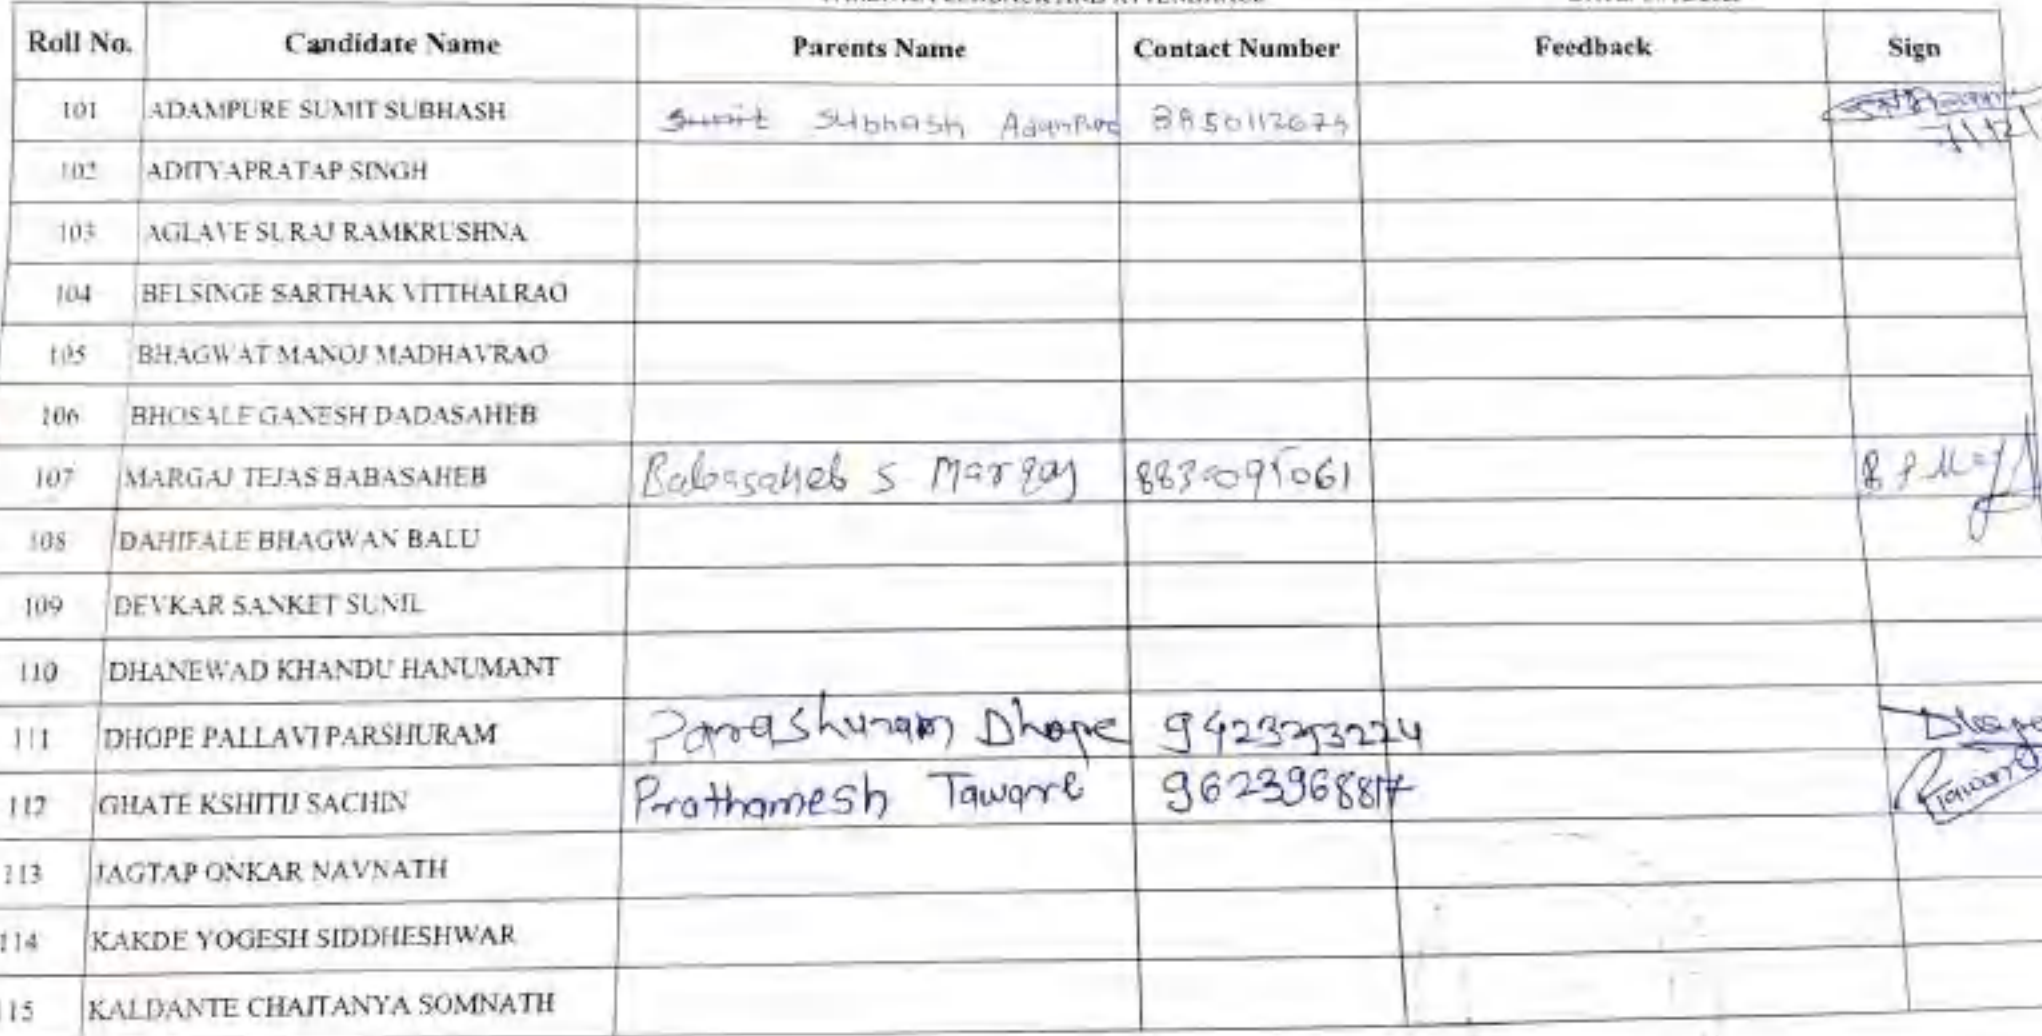 Roll No. Candidate Name Parents Name Contact Number Feedback Sign
101 ADAMPURE SUMIT SUBHASH Subhash
102 ADITYAPRATAP SINGH
103 AGLAVE SURAJ RAMKRUSHNA
104 BELSINGE SARTHAK VITTHALRAO
105 BHAGWAT MANOJ MADHAVRAO
106 BHOSALE GANESH DADASAHEB
107 MARGAJ TEJAS BABASAHEB Babasaheb S Margaj
108 DAHIFALE BHAGWAN BALU
109 DEVKAR SANKET SUNIL
110 DHANEWAD KHANDU HANUMANT
111 DHOPE PALLAVI PARSHURAM Parashuram Dhope Dhope
112 GHATE KSHITIJ SACHIN Prathamesh Taware
113 JAGTAP ONKAR NAVNATH
114 KAKDE YOGESH SIDDHESHWAR
115 KALDANTE CHAITANYA SOMNATH